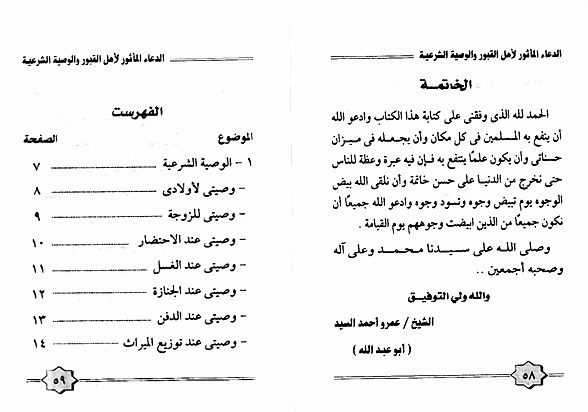 الدعاء المأثور لأهل القبور والوصية الشرعية
الخاتمة
الحمد لله الذى وفقنى على كتابة هذا الكتاب وادعو الله
أن ينفع به المسلمين فى كل مكان وأن يجعله فى ميزان
حسناتى وأن يكون علمًا ينتفع به فإن فيه عبرة وعظة للناس
حتى نخرج من الدنيا على حسن خاتمة وأن نلقى الله بيض
الوجوه يوم تبيض وجوه وتسود وجوه وادعو الله جميعًا أن
نكون جميعًا من الذين ابيضت وجوههم يوم القيامة .
وصلى الله على سيدنا محمد وعلى آله
وصحبه أجمعين ..
والله ولي التوفيق
الشيخ / عمرو أحمد السيد
( أبو عبد الله )
٥٨
الدعاء المأثور لأهل القبور والوصية الشرعية
الفهرست
الموضوع الصفحة
١ - الوصية الشرعية ٧
- وصيتى لأولادى ٨
- وصيتى للزوجة ٩
- وصيتى عند الاحتضار ١٠
- وصيتى عند الغسل ١١
- وصيتى عند الجنازة ١٢
- وصيتى عند الدفن ١٣
- وصيتى عند توزيع الميراث ١٤
٥٩